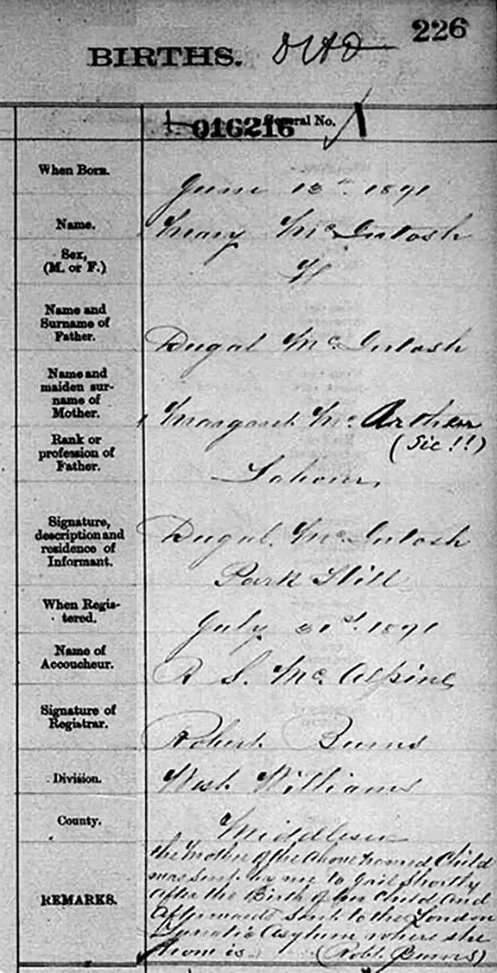 226
BIRTHS.
016216 General No.
When Born.
June 12th 1891
Name.
Mary McIntosh
Sex,
(M. or F.)
F
Name and
Surname of
Father.
Dugal McIntosh
Name and
maiden sur-
name of
Mother.
Margaret McArthur
(Sic!!)
Rank or
profession of
Father.
Labourer
Signature,
description and
residence of
Informant.
Dugal McIntosh
Park Hill
When Regis-
tered.
July 1891
Name of
Accoucheur.
R S. McAlpine
Signature of
Registrar.
Robert Burns
Division.
West Williams
County.
Middlesex
REMARKS.
the Mother of the above named Child
was sent by me to Gail Shortly
After the Birth of her Child and
Afterwards sent to the London
Lunatic Asylum where she
is (Robt. Burns)